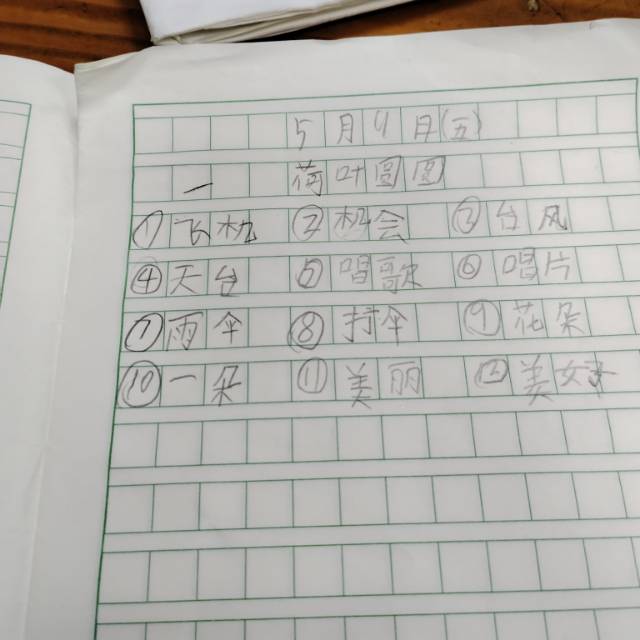 5月11日(五)
一 荷叶圆圆
①飞机 ②机会 ③台风
④天台 ⑤唱歌 ⑥唱片
⑦雨伞 ⑧打伞 ⑨花朵
⑩一朵 ⑪美丽 ⑫美好